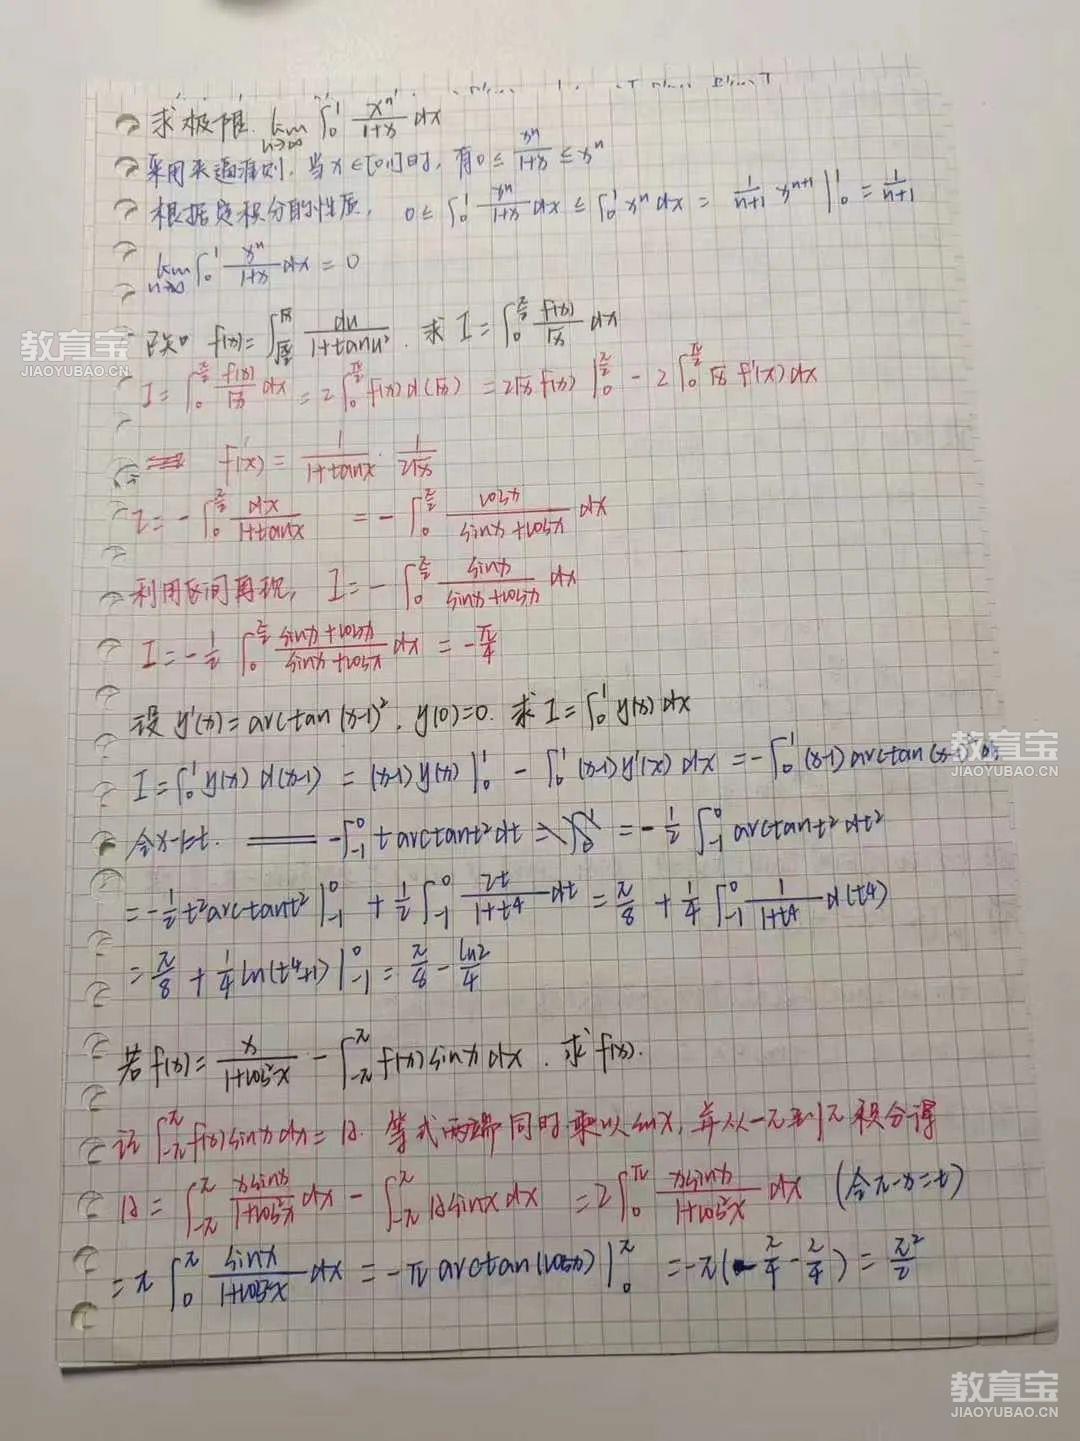 求极限 lim n→∞ ∫₀¹ xⁿ/(1+x) dx
采用夹逼准则,当x∈[0,1]时,有0 ≤ xⁿ/(1+x) ≤ xⁿ
根据定积分的性质, 0 ≤ ∫₀¹ xⁿ/(1+x) dx ≤ ∫₀¹ xⁿ dx = 1/(n+1) xⁿ⁺¹ |₀¹ = 1/(n+1)
lim n→∞ ∫₀¹ xⁿ/(1+x) dx = 0
已知 f(x) = ∫_{√(π/2)}^{√x} du/(1+tanu²). 求 I = ∫₀^{π/2} f(x)/√x dx
教育宝
JIAOYUBAO.CN
I = ∫₀^{π/2} f(x)/√x dx = 2∫₀^{π/2} f(x)d(√x) = 2√x f(x) |₀^{π/2} - 2∫₀^{π/2} √x f'(x)dx
f'(x) = 1/(1+tanx) · 1/(2√x)
I = -∫₀^{π/2} dx/(1+tanx) = -∫₀^{π/2} cosx/(sinx+cosx) dx
利用区间再现, I = -∫₀^{π/2} sinx/(sinx+cosx) dx
I = -1/2 ∫₀^{π/2} (sinx+cosx)/(sinx+cosx) dx = -π/4
设 y'(x) = arctan(x-1)², y(0)=0. 求 I = ∫₀¹ y(x)dx
I = ∫₀¹ y(x)d(x-1) = (x-1)y(x) |₀¹ - ∫₀¹ (x-1)y'(x)dx = -∫₀¹ (x-1)arctan(x-1)²
教育宝
JIAOYUBAO.CN
令x-1=t. -∫₋₁⁰ t arctant² dt = -1/2 ∫₋₁⁰ arctant² dt²
= -1/2 t² arctant² |₋₁⁰ + 1/2 ∫₋₁⁰ 2t/(1+t⁴) dt = π/8 + 1/4 ∫₋₁⁰ 1/(1+t⁴) d(t⁴)
= π/8 + 1/4 ln(t⁴+1) |₋₁⁰ = π/8 - ln2/4
若 f(x) = x/(1+cos²x) - ∫_{-π}^{π} f(x)sinx dx. 求 f(x).
记 ∫_{-π}^{π} f(x)sinx dx = A. 等式两端同时乘以sinx, 并从-π到π积分得
A = ∫_{-π}^{π} xsinx/(1+cos²x) dx - ∫_{-π}^{π} Asinx dx = 2∫₀^{π} xsinx/(1+cos²x) dx (令π-x=t)
= π∫₀^{π} sinx/(1+cos²x) dx = -π arctan(cosx) |₀^{π} = -π(-π/4 - π/4) = π²/2
教育宝
JIAOYUBAO.CN